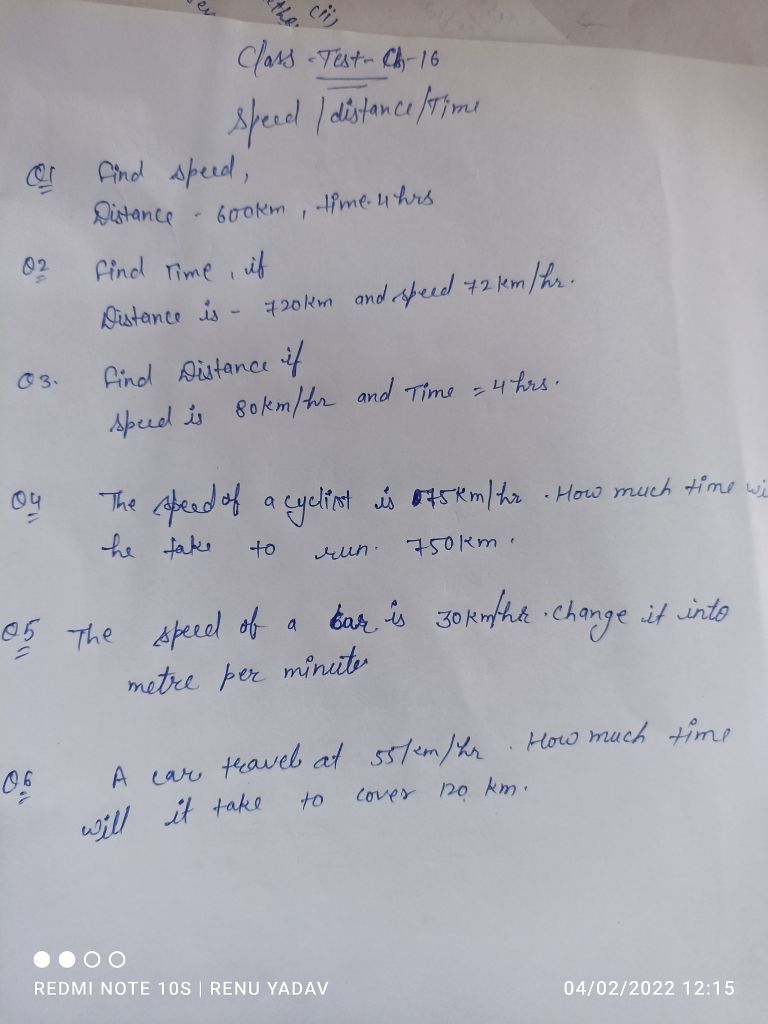 (ii)
Class - Test - Ch-16
Speed / distance / Time
Q1 Find speed,
Distance - 600km , time-4 hrs
Q2 Find Time , if
Distance is - 720km and speed 72km/hr.
Q3. Find Distance if
speed is 80km/hr and Time = 4 hrs.
Q4 The speed of a cyclist is 75km/hr . How much time wi
he take to run. 750km.
Q5 The speed of a car is 30km/hr . Change it into
metre per minute
Q6 A car travel at 55km/hr . How much time
will it take to cover 120 km.
REDMI NOTE 10S | RENU YADAV
04/02/2022 12:15